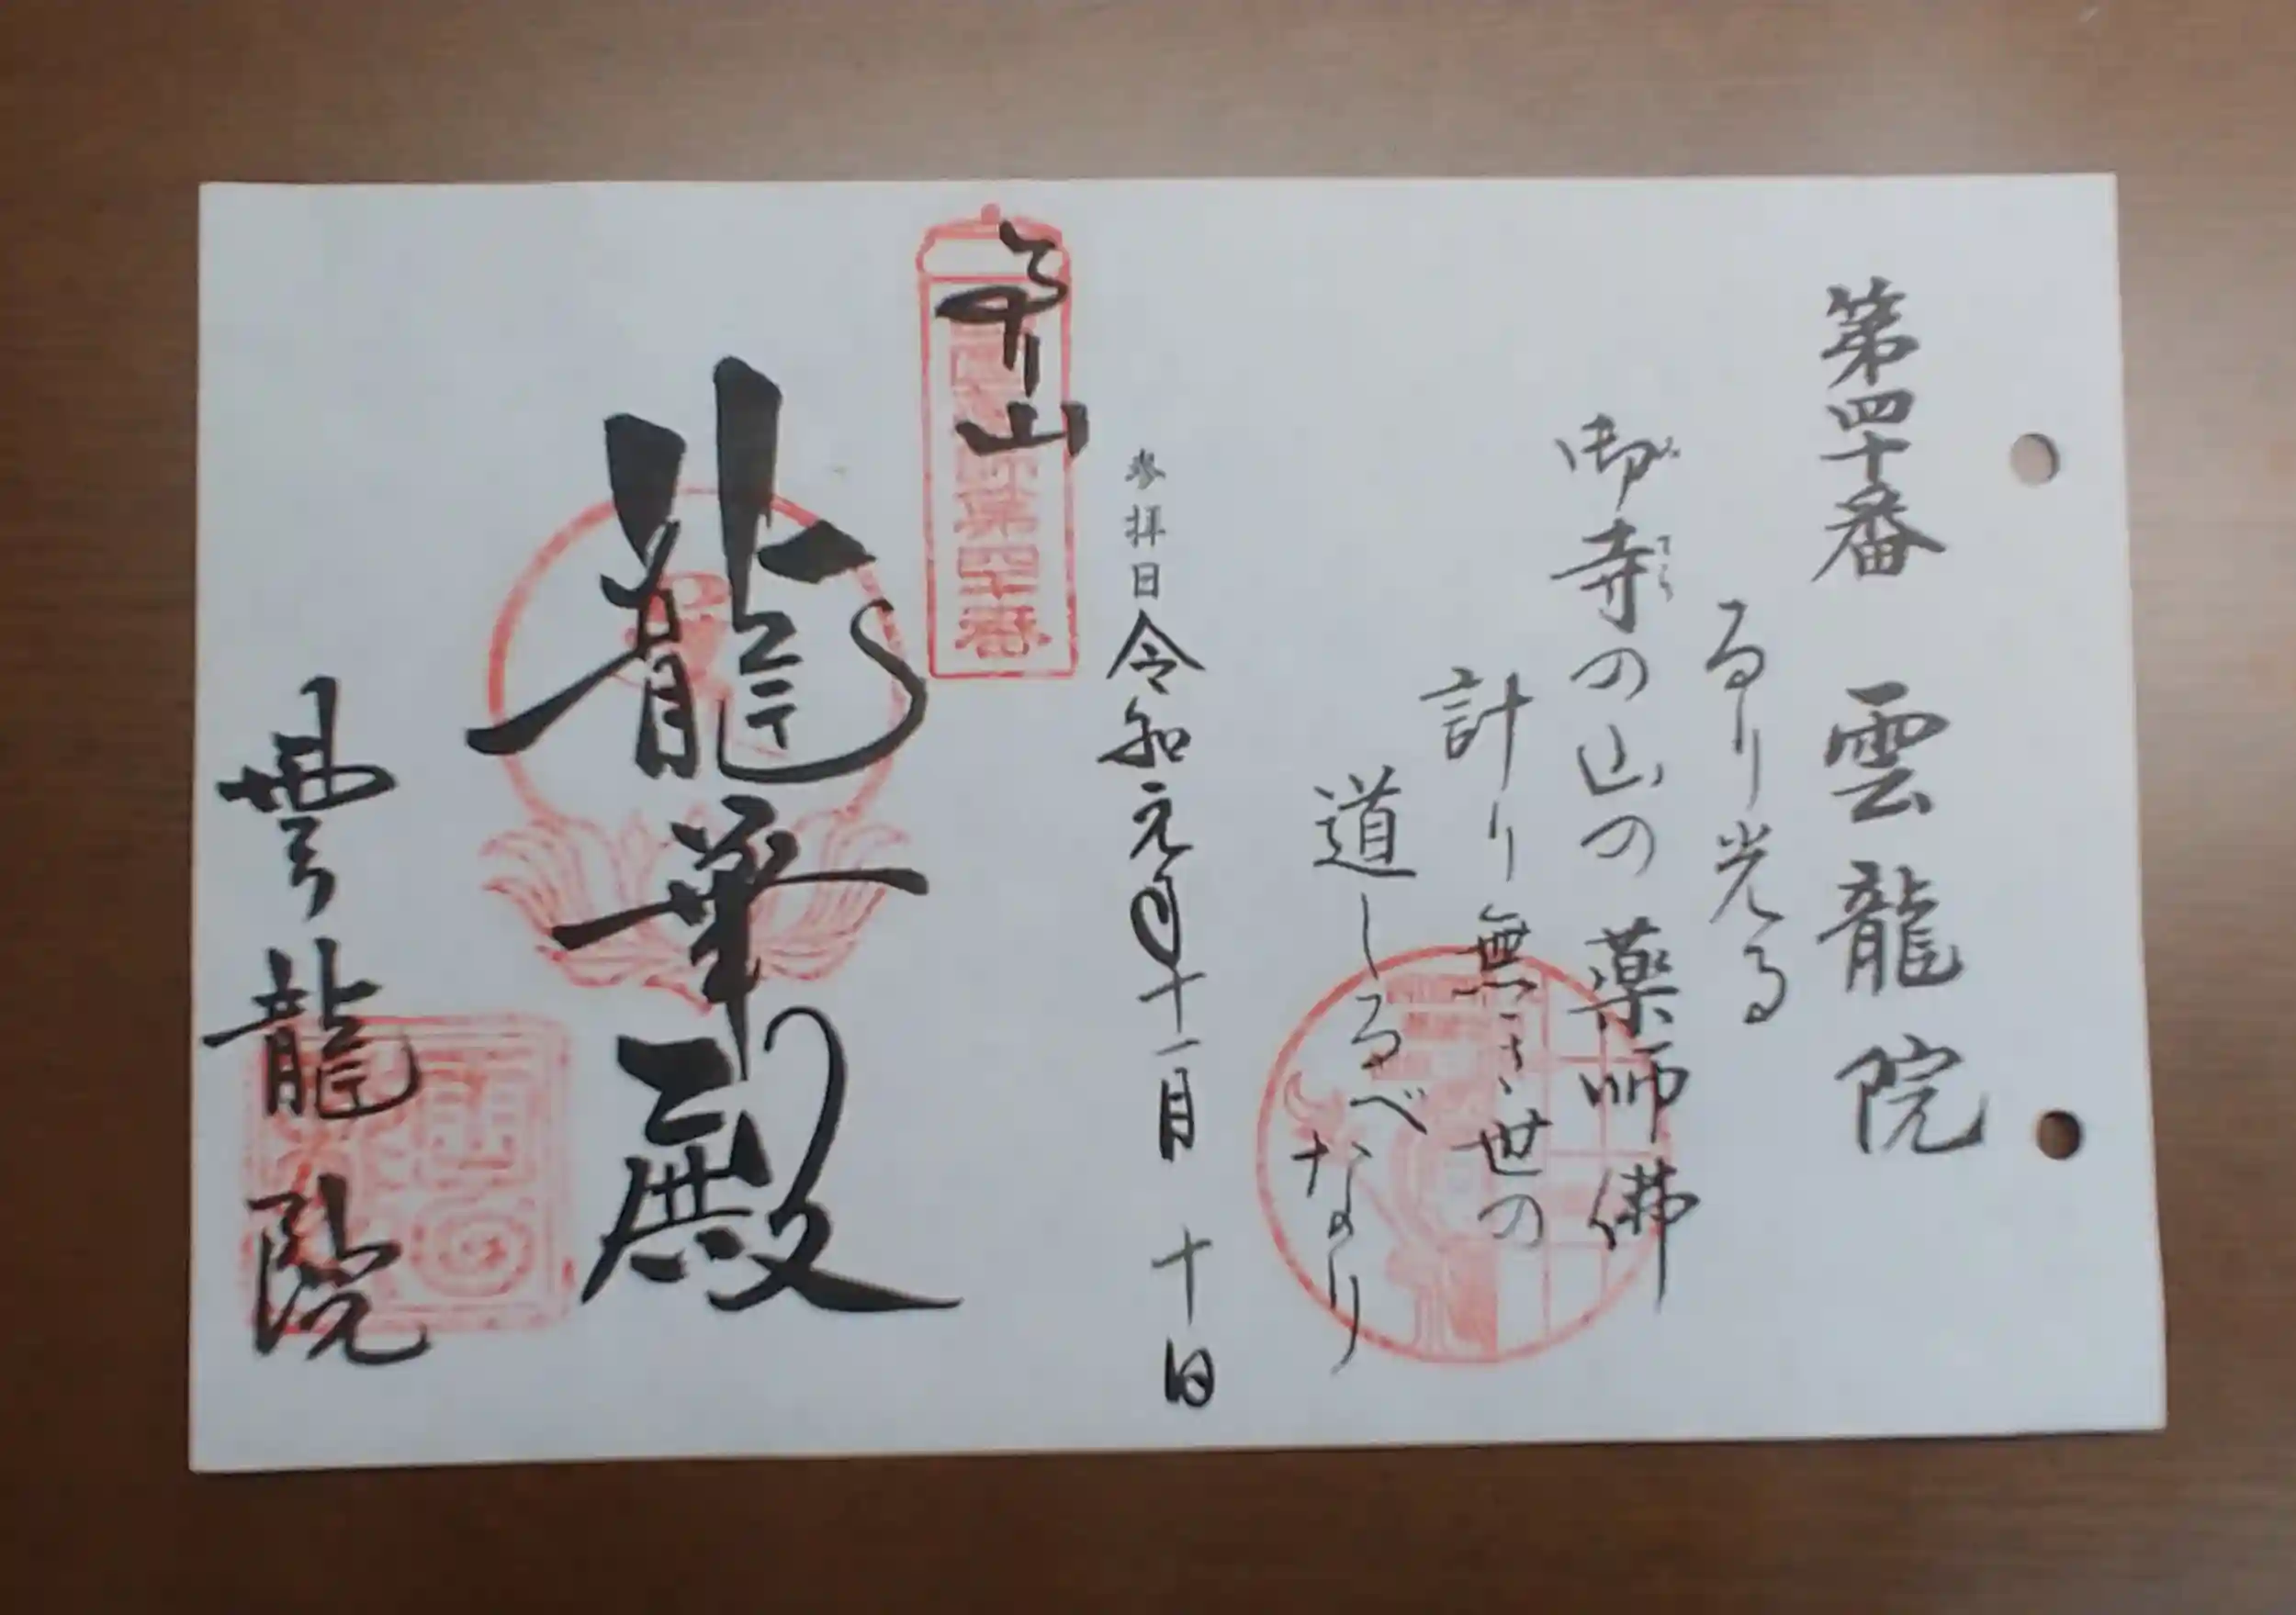 第四十番　雲龍院
るり光る
御寺の山の薬師佛
てら
計り無き世の
道しるべなり
参拝日 令和元年十一月 十日
第四十番
龍華殿
雲龍院